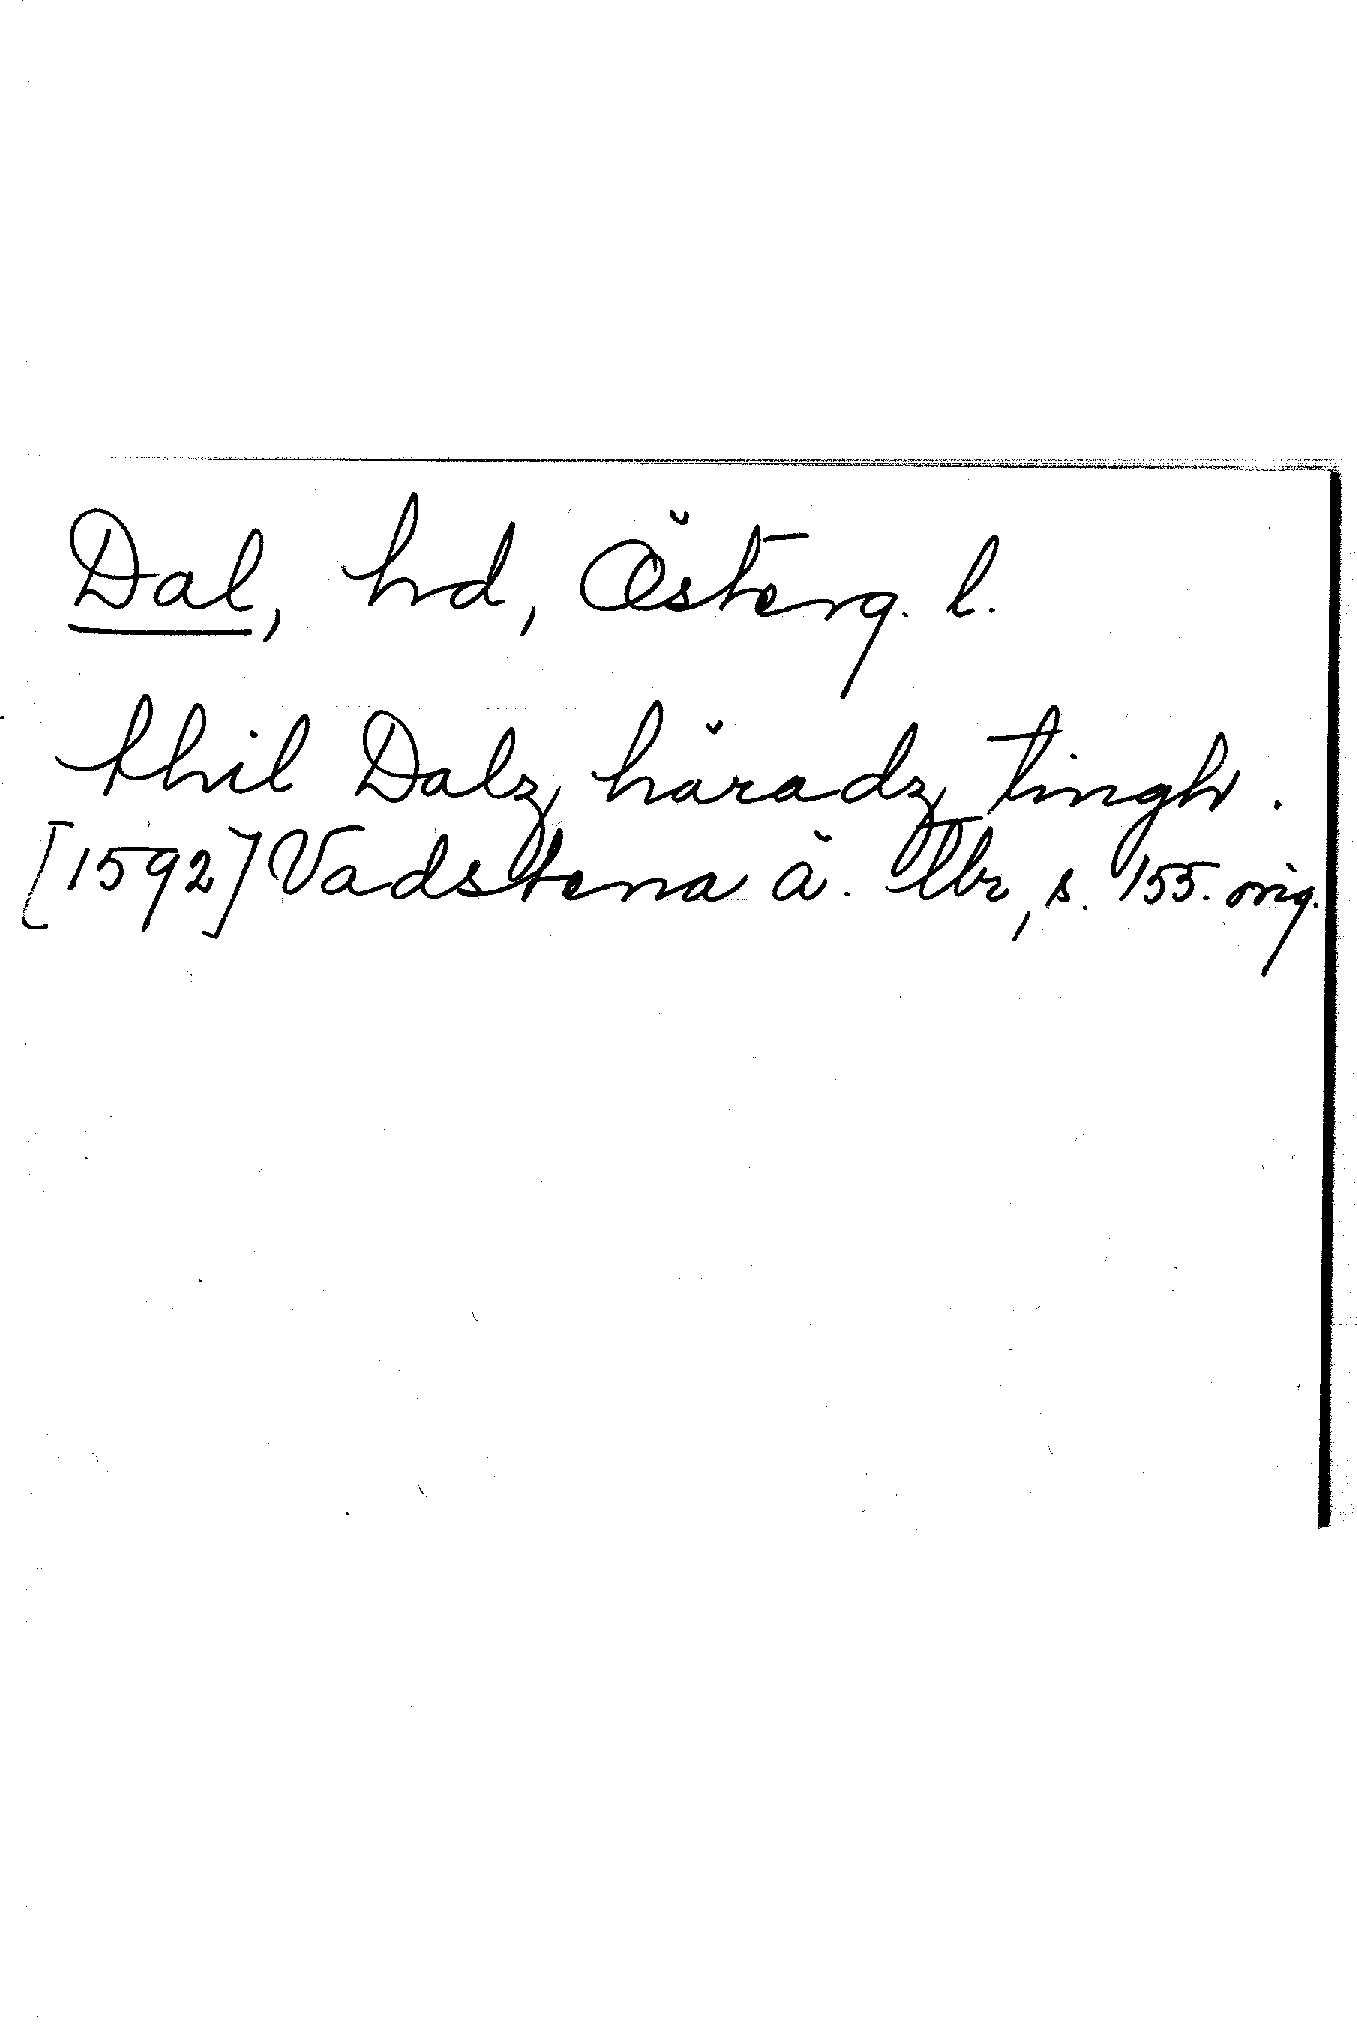 Dal, hd, Österg. l.
thil Dalz häradz tingh.
[1592] Vadstena ä. tbr, s. 155. orig.